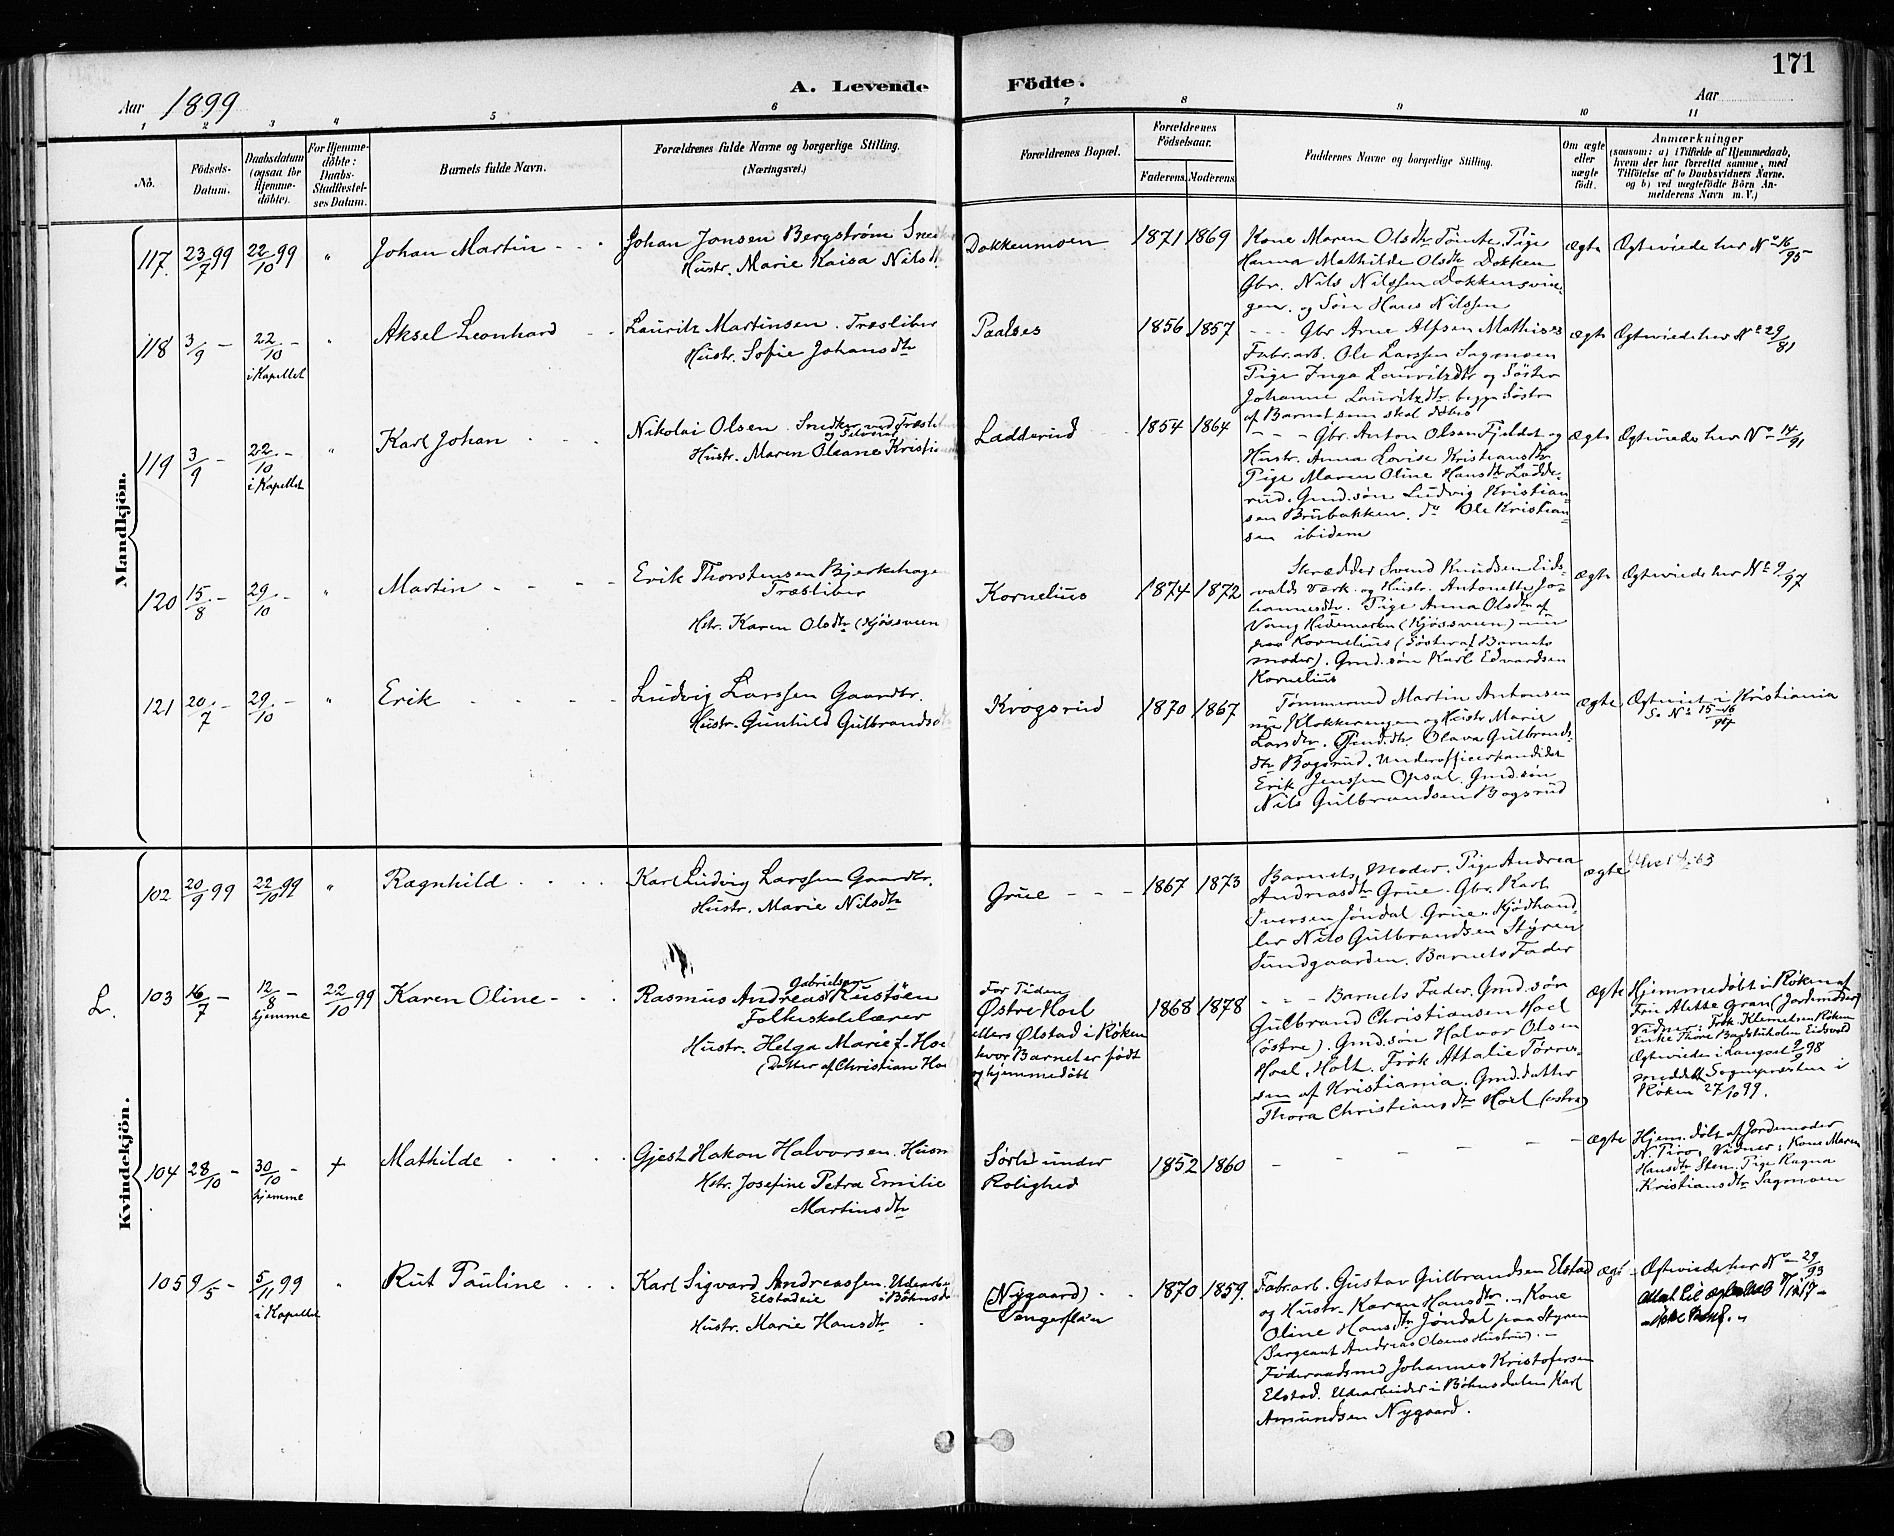 171
Aar 1899
A. Levende Födte.
Aar
1 2 3 4 5 6 7 8 9 10 11
No.
Födsels-
Datum.
Daabsdatum
(ogsaa for
Hjemme-
döbte).
For Hjemme-
döbte:
Daabs-
Stadfæstel-
ses Datum.
Barnets fulde Navn.
Forældrenes fulde Navne og borgerlige Stilling.
(Næringsvei.)
Forældrenes Bopæl.
Forældrenes
Födselsaar.
Faderens. Moderens.
Faddernes Navne og borgerlige Stilling.
Om ægte
eller
uægte
födt.
Anmærkninger
(saasom: a) i Tilfælde af Hjemmedaab,
hvem der har forrettet samme, med
Tilföielse af to Daabsvidners Navne.
og b) ved uægtefödte Börn An-
melderens Navn m.V.)
Mandkjön.
117. 23/7 99 22/10 99 " Johan Martin
Johan Jonsen Bergstrøm
Hustr. Marie Kaisa Nilsd
Dokkenmoen 1871 1869
Kone Maren Olsdtr Tømte. Pige
Hanna Mathilde Olsdtr Dokken
Gbr. Nils Nilssen Dokkensvin-
gen og Søn Hans Nilssen
ægte Ægteviede her No 16/95
118 3/9 - 22/10 - i Kapellet " Aksel Leonhard
Lauritz Martinsen. Træsliber
Hustr. Sofie Johansdtr
Paalses 1856 1857
- - - Gbr Arne Alfsen Mathises
Fabr.arb. Ole Larssen Sagmoen
Pige Inga Lauritzdtr og Søster
Johanne Lauritzdtr begge Søstre
af Barnet som skal døbes
ægte Ægteviede her No 29/81
119 3/9 22/10 - i Kapellet " Karl Johan
Nikolai Olsen. Snedker ved Træsl
Hustr. Maren Oleane Kristi
Ladderud 1854 1864
- - - Gbr. Anton Olsen Fjeldet og
Hustr. Anna Lovise Kristiansdtr
Pige Maren Oline Hansdtr Ladde-
rud. Gmd.søn Ludvig Kristian-
sen Brubakken. do Ole Kristian-
sen ibidem
ægte Ægteviede her No 14/91
120 15/8 - 29/10 - " Martin
Erik Thorstensen Bjerkehage
Træsliber
Hstr. Karen Olsdtr (Kjøsveen)
Kornelius 1874 1872
Skrædder Svend Knudsen Eids-
volds Værk og Hustr. Antonette Jo-
hannesdtr. Pige Anna Olsdtr af
Vang Hedemarken (Kjøssveen) - nu
paa Kornelius (Søster af Barnets
moder). Gmd.søn Karl Edvardsen
Kornelius
ægte Ægteviede her No 9/97
121 20/7 - 29/10 - " Erik
Ludvig Larssen Gaardbr.
Hustr. Gunhild Gulbrandsd
Krogsrud 1870 1867
Tømmermd Martin Antonsen
nu Klokkerengen og Hustr Marie
Larsdtr. Gmd.dtr. Olava Gulbrands-
dtr Bogsrud. Underofficerskandidat
Erik Jenssen Opsal. Gmd.søn
Nils Gulbrandsen Bogsrud
ægte Ægteviet i Kristiania
Se No 15-16
Kvindekjön.
102 20/9 99 22/10 99 " Ragnhild
Karl Ludvig Larssen Gaardbr.
Hustr. Marie Nilsdtr
Grue - - - 1867 1873
Barnets Moder. Pige Andrea
Andreasdtr Grue. Gbr. Karl
Iversen Jøndal. Grue. Kjødhand-
ler Nils Gulbrandsen Styren
Sundgaarden. Barnets Fader
ægte
L.
103 16/7 - 12/8 - hjemme 22/10 99 Karen Oline
Gabrielsen
Rasmus Andreas Rustöen
Folkeskolelærer
Hustr. Helga Marie f. Ho
(Datter af Christian Ho
For Tiden
Østre Hoel
ellers Ølstad i Røken
hvor Barnet er født
og hjemmedøbt
1868 1878
- - - Barnets Fader. Gmd.søn
Gulbrand Christiansen Hoel
(østre). Gmd.søn Halvor Olsen
Hoel, Holt. Frøk Attalie Tørres-
sen af Kristiania. Gmd.datter
Thora Christiansdtr Hoel (østre)
ægte Hjemmedøbt i Røken af
Fru Alette Gran (Jordemoder)
Vidner: Frøk Klemetsen Røken
Enke Thore Bundlieholen Eidsvold
Ægteviede i Langset 2/9 98
anmeldt Sognepræsten i
Røken 27/10 99.
104 28/10 - 30/10 - hjemme + Mathilde
Gjest Hakon Halvorsen. Husm
Hstr. Josefine Petra Emilie
Martinsdtr
Sørli under
Rolighed
1852 1860 - - - - -
ægte Hjem. døbt af Jordemoder
N. Piro. Vidner: Kone Maren
Hansdtr Sten. Pige Ragna
Kristiansdtr Sagmoen
105 9/5 - 5/11 99 i Kapellet " Rut Pauline
Karl Sigvard Andreassen. Udearbei
Elstadeie i Bøhnsd
Hustr. Marie Hansdtr
(Nygaard)
Vengerflaen
1870 1859.
Fabr.arb. Gustav Gulbrandsen Elstad
og Hustr. Karen Hansdtr. - Kone
Oline Hansdtr Jøndal paa Styren
(Sergeant Andreas Olsens Hustru). -
Føderaadsmd Johannes Kristofersen
Elstad. Udearbeider i Bøhnsdalen Karl
Amundsen Nygaard.
ægte Ægteviede her No 29/93